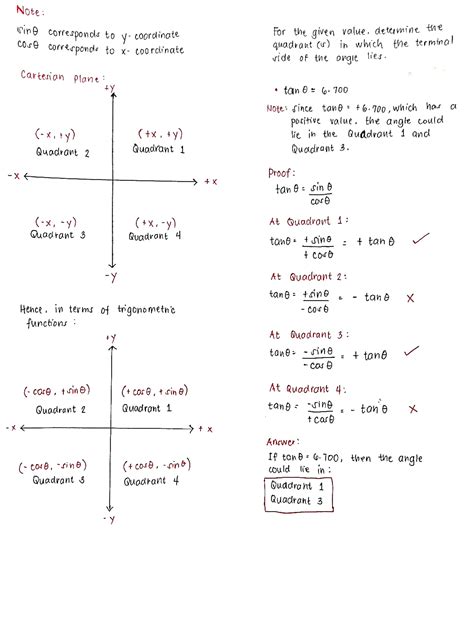 Note:
sinθ corresponds to y-coordinate
cosθ corresponds to x-coordinate
Cartesian Plane:
+y
(-x, +y)
Quadrant 2
(+x, +y)
Quadrant 1
-x
+x
(-x, -y)
Quadrant 3
(+x, -y)
Quadrant 4
-y
Hence, in terms of trigonometric
functions:
+y
(-cosθ, +sinθ)
Quadrant 2
(+cosθ, +sinθ)
Quadrant 1
-x
+x
(-cosθ, -sinθ)
Quadrant 3
(+cosθ, -sinθ)
Quadrant 4
-y
For the given value, determine the
quadrant(s) in which the terminal
side of the angle lies.
• tan θ = 6.700
Note: Since tanθ = +6.700, which has a
positive value, the angle could
lie in the Quadrant 1 and
Quadrant 3.
Proof:
tanθ = sinθ
cosθ
At Quadrant 1:
tanθ = +sinθ = + tanθ ✓
+cosθ
At Quadrant 2:
tanθ = +sinθ = - tanθ X
-cosθ
At Quadrant 3:
tanθ = -sinθ = + tanθ ✓
-cosθ
At Quadrant 4:
tanθ = -sinθ = - tanθ X
+cosθ
Answer:
If tanθ = 6.700, then the angle
could lie in:
Quadrant 1
Quadrant 3